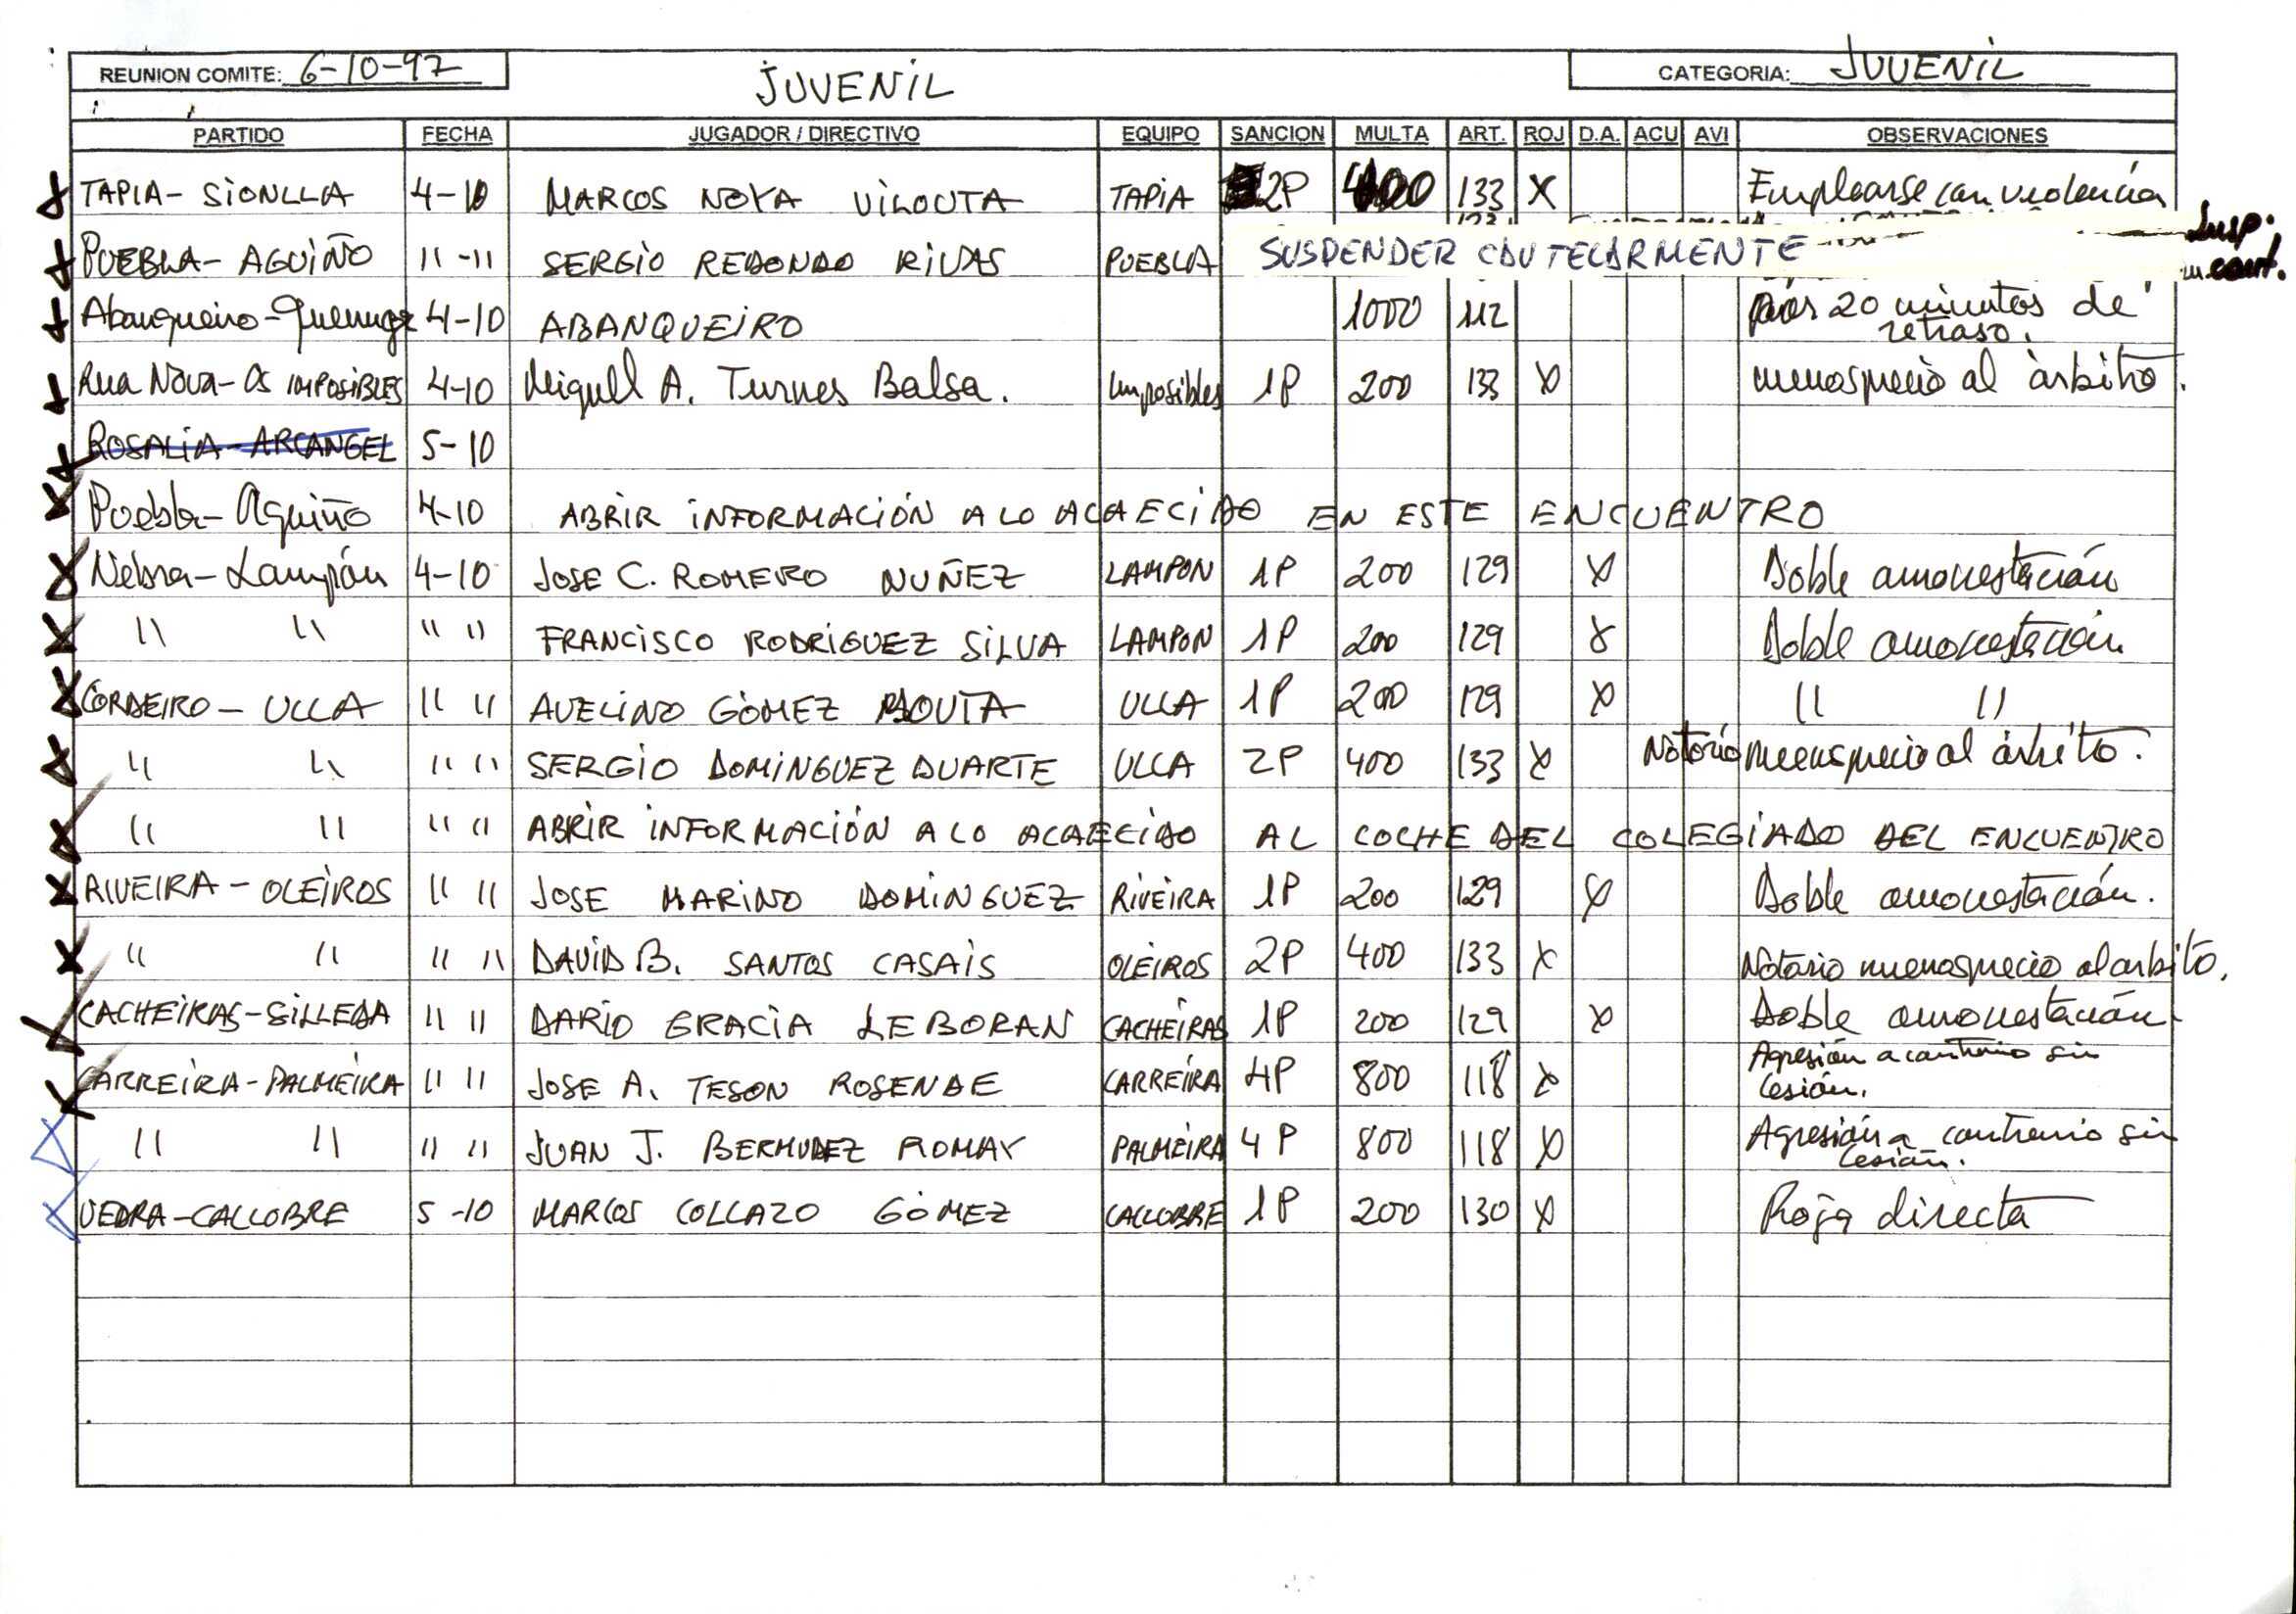 REUNION COMITE: 6-10-97 JUVENIL CATEGORIA: JUVENIL
PARTIDO FECHA JUGADOR / DIRECTIVO EQUIPO SANCION MULTA ART. ROJ D.A. ACU AVI OBSERVACIONES
TAPIA - SIONLLA 4-10 MARCOS NOYA VILOUTA TAPIA 2P 400 133 X Emplearse con violencia
PUEBLA - AGUIÑO " - " SERGIO REDONDO RIVAS PUEBLA SUSPENDER CAUTELARMENTE Susp. caut.
Abanqueiro - 4-10 ABANQUEIRO 1000 112 por 20 minutos de retraso.
Rua Nova - Os IMPOSIBLES 4-10 Miguel A. Turnes Balsa. Imposibles 1P 200 133 X menosprecio al àrbitro.
ROSALIA - ARCANGEL 5-10
Puebla - Aguiño 4-10 ABRIR INFORMACIÓN A LO ACAECIDO EN ESTE ENCUENTRO
Nebra - Lampón 4-10 JOSE C. ROMERO NUÑEZ LAMPON 1P 200 129 X Doble amonestación
" " " " FRANCISCO RODRIGUEZ SILVA LAMPON 1P 200 129 X Doble amonestación.
CORDEIRO - ULLA " " AVELINO GÓMEZ ULLA 1P 200 129 X " "
" " " " SERGIO DOMINGUEZ DUARTE ULLA 2P 400 133 X Notorio menosprecio al árbitro.
" " " " ABRIR INFORMACIÓN A LO ACAECIDO AL COCHE DEL COLEGIADO DEL ENCUENTRO
RIVEIRA - OLEIROS " " JOSE MARINO DOMINGUEZ RIVEIRA 1P 200 129 X Doble amonestación.
" " " " DAVID B. SANTOS CASAIS OLEIROS 2P 400 133 X Notorio menosprecio al arbitro.
CACHEIRAS - SILLEDA " " DARIO GRACIA LEBORAN CACHEIRAS 1P 200 129 X Doble amonestación.
CARREIRA - PALMEIRA " " JOSE A. TESON ROSENDE CARREIRA 4P 800 118 X Agresión a contrario sin lesión.
" " " " JUAN J. BERMUDEZ ROMAY PALMEIRA 4P 800 118 X Agresión a contrario sin lesión.
VEDRA - CALLOBRE 5-10 MARCOS COLLAZO GÓMEZ CALLOBRE 1P 200 130 X Roja directa